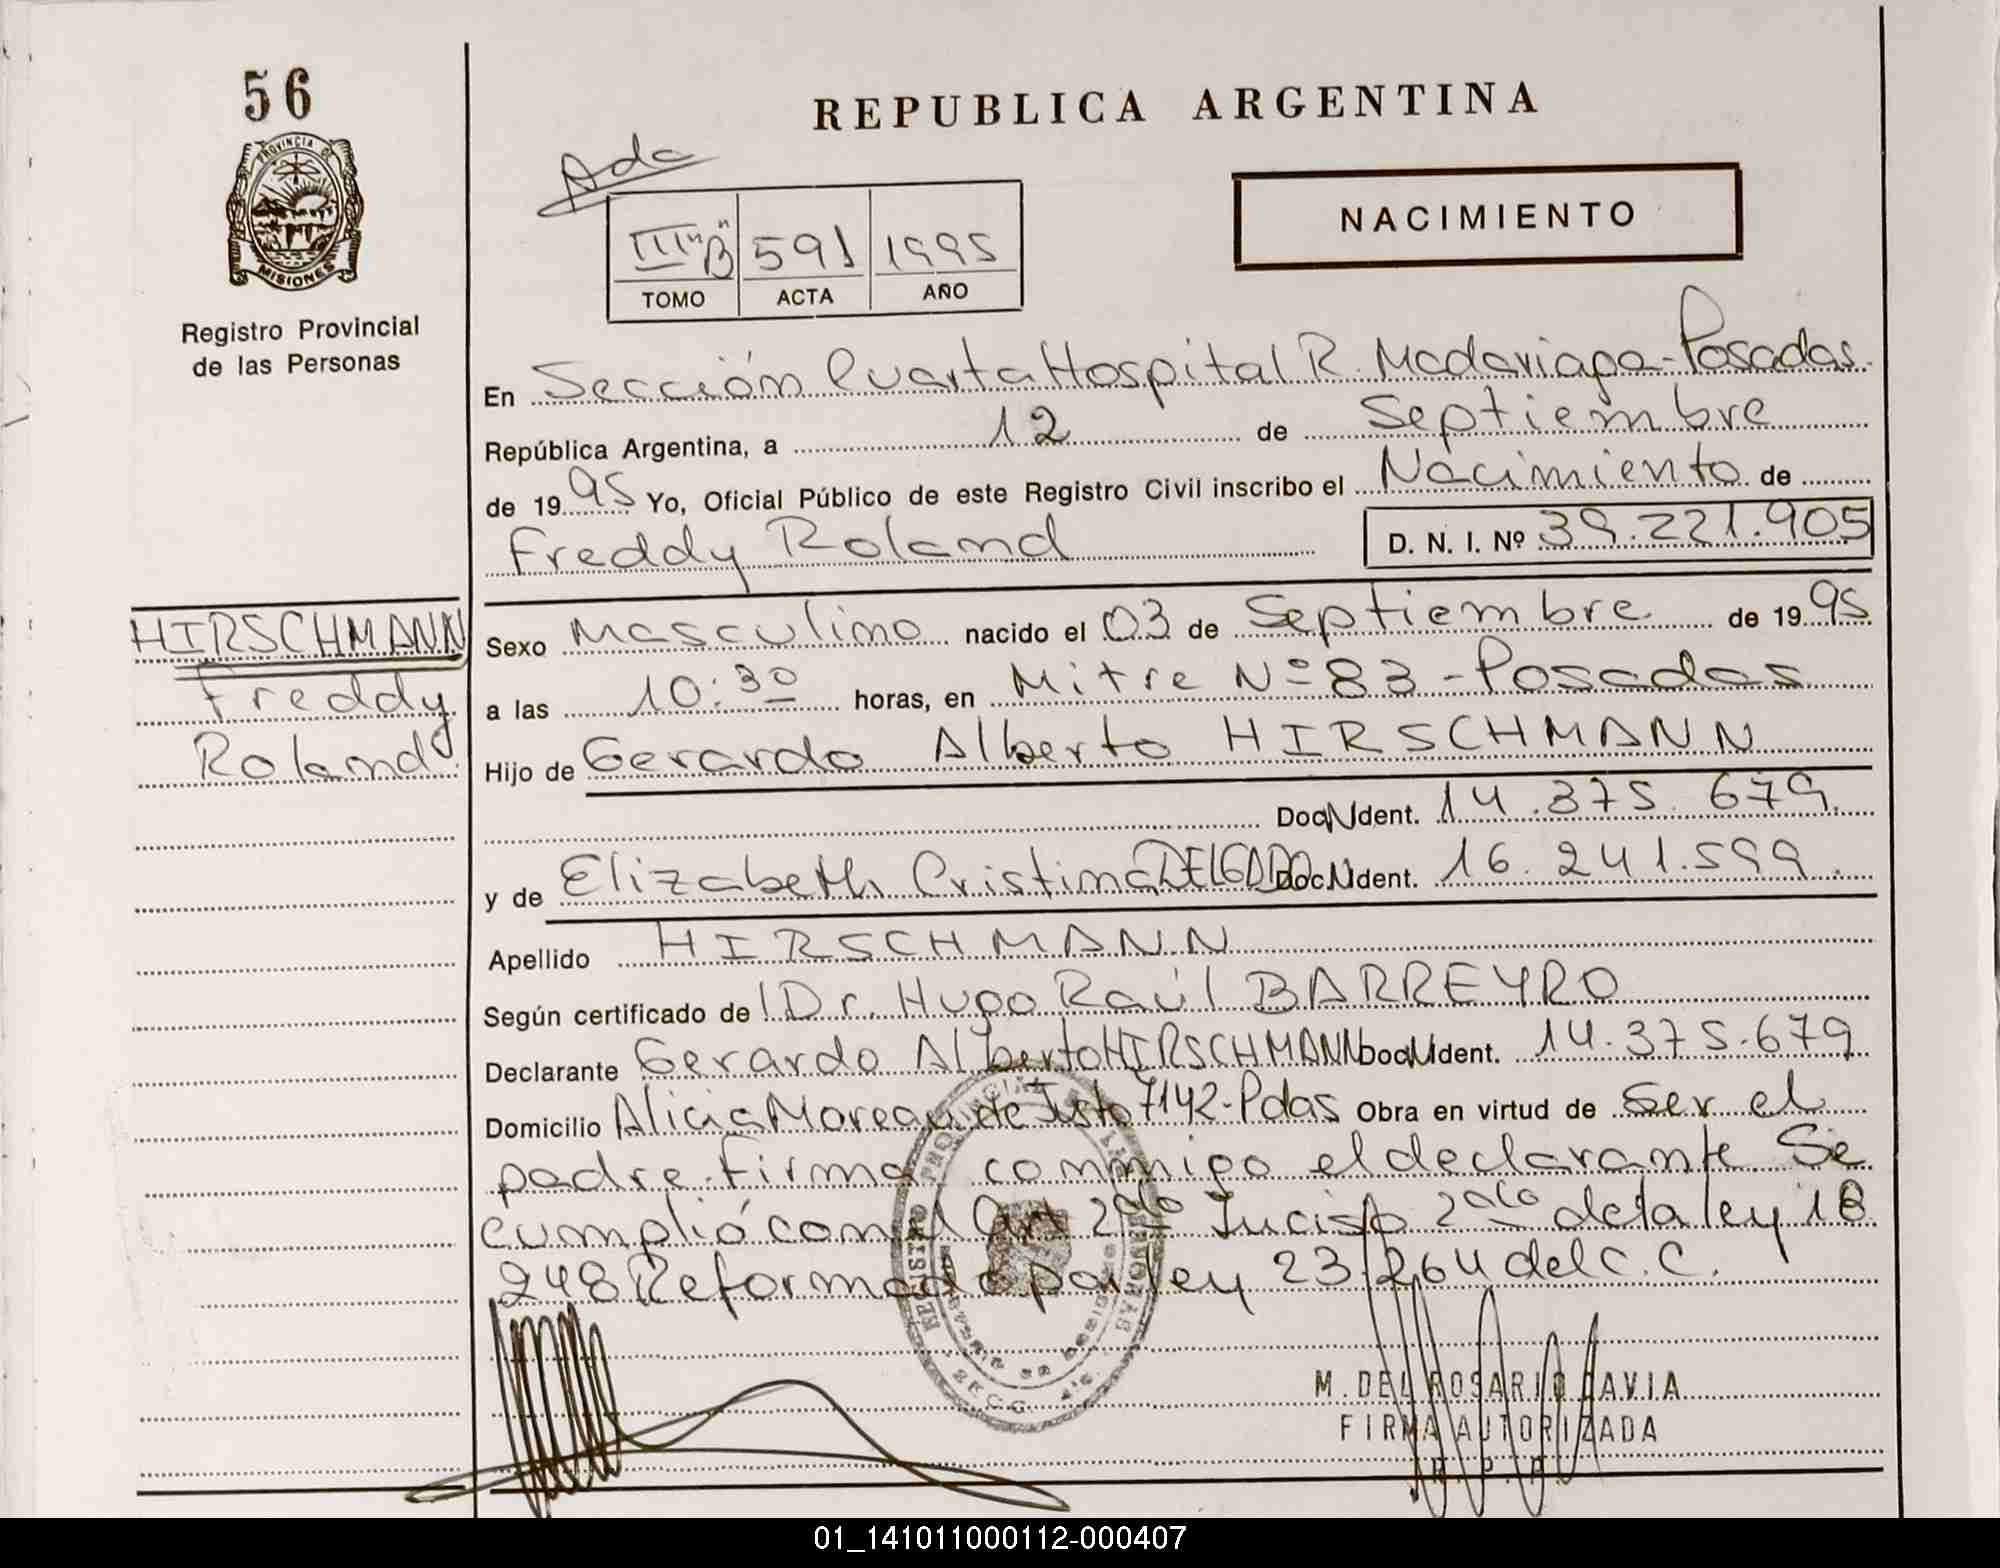 56
REPUBLICA ARGENTINA
PROVINCIA DE
MISIONES
Registro Provincial
de las Personas
Ada
NACIMIENTO
III "B" 591 1995
TOMO ACTA AÑO
En Sección Cuarta Hospital R. Madariaga - Posadas.
República Argentina, a 12 de Septiembre
de 1995 Yo, Oficial Público de este Registro Civil inscribo el Nacimiento de
Freddy Roland D. N. I. Nº 39.221.905
HIRSCHMANN
Freddy
Roland
Sexo Masculino nacido el 03 de Septiembre de 1995
a las 10:30 horas, en Mitre Nº 83 - Posadas
Hijo de Gerardo Alberto HIRSCHMANN
Doc N Ident. 14.375.679
y de Elizabeth Cristina DELGADO Doc N Ident. 16.241.599
Apellido HIRSCHMANN
Según certificado de Dr. Hugo Raúl BARREYRO
Declarante Gerardo Alberto HIRSCHMANN Doc N Ident. 14.375.679
Domicilio Alicia Moreau de Justo 7142-Pdas Obra en virtud de Ser el
padre. Firma conmigo el declarante Se
cumplió con el Art 2do Inciso 2do de la ley 18
248 Reformado por ley 23.264 del C. C.
M. DEL ROSARIO
FIRMA AUTORIZADA
R. P. P.
01_141011000112-000407